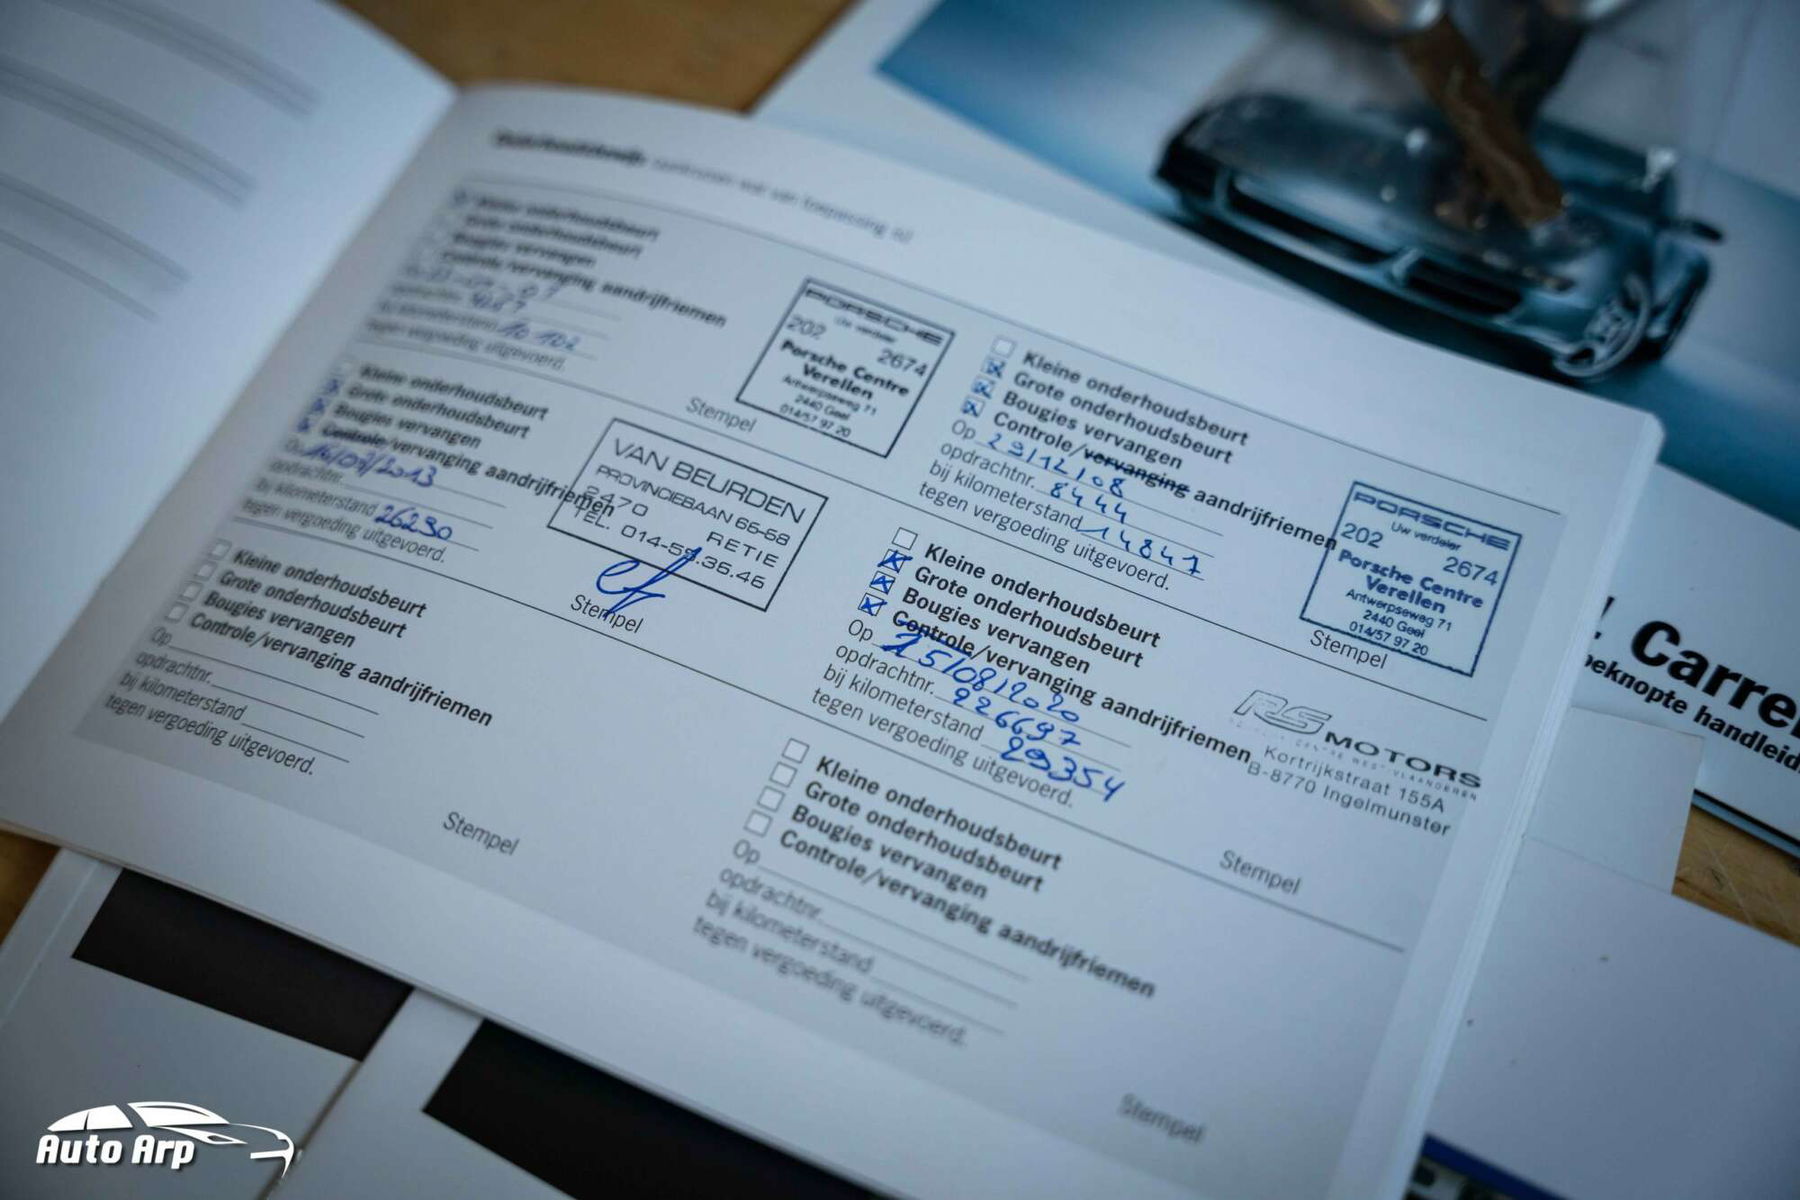 Onderhoudsbewijs
van toepassing is)
Kleine onderhoudsbeurt
Grote onderhoudsbeurt
Bougies vervangen
Controle/vervanging aandrijfriemen
bij kilometerstand 10102
tegen vergoeding uitgevoerd.
PORSCHE
Uw verdeler
202 2674
Porsche Centre
Verellen
Antwerpseweg 71
2440 Geel
014/57 97 20
Stempel
Kleine onderhoudsbeurt
Grote onderhoudsbeurt
Bougies vervangen
Controle/vervanging aandrijfriemen
Op
29/12/08
opdrachtnr. 8444
bij kilometerstand 14847
tegen vergoeding uitgevoerd.
PORSCHE
Uw verdeler
202 2674
Porsche Centre
Verellen
Antwerpseweg 71
2440 Geel
014/57 97 20
Stempel
Kleine onderhoudsbeurt
Grote onderhoudsbeurt
Bougies vervangen
Controle/vervanging aandrijfriemen
opdrachtnr.
bij kilometerstand 26230
tegen vergoeding uitgevoerd.
VAN BEURDEN
PROVINCIEBAAN 66-68
2470 RETIE
TEL. 014-36.46
Stempel
Kleine onderhoudsbeurt
Grote onderhoudsbeurt
Bougies vervangen
Controle/vervanging aandrijfriemen
Op 25/08/2020
opdrachtnr. 226697
bij kilometerstand 29354
tegen vergoeding uitgevoerd.
RS MOTORS
Kortrijkstraat 155A
B-8770 Ingelmunster
Stempel
Kleine onderhoudsbeurt
Grote onderhoudsbeurt
Bougies vervangen
Controle/vervanging aandrijfriemen
Op
opdrachtnr.
bij kilometerstand
tegen vergoeding uitgevoerd.
Stempel
Kleine onderhoudsbeurt
Grote onderhoudsbeurt
Bougies vervangen
Controle/vervanging aandrijfriemen
Op
opdrachtnr.
bij kilometerstand
tegen vergoeding uitgevoerd.
Stempel
Auto Arp